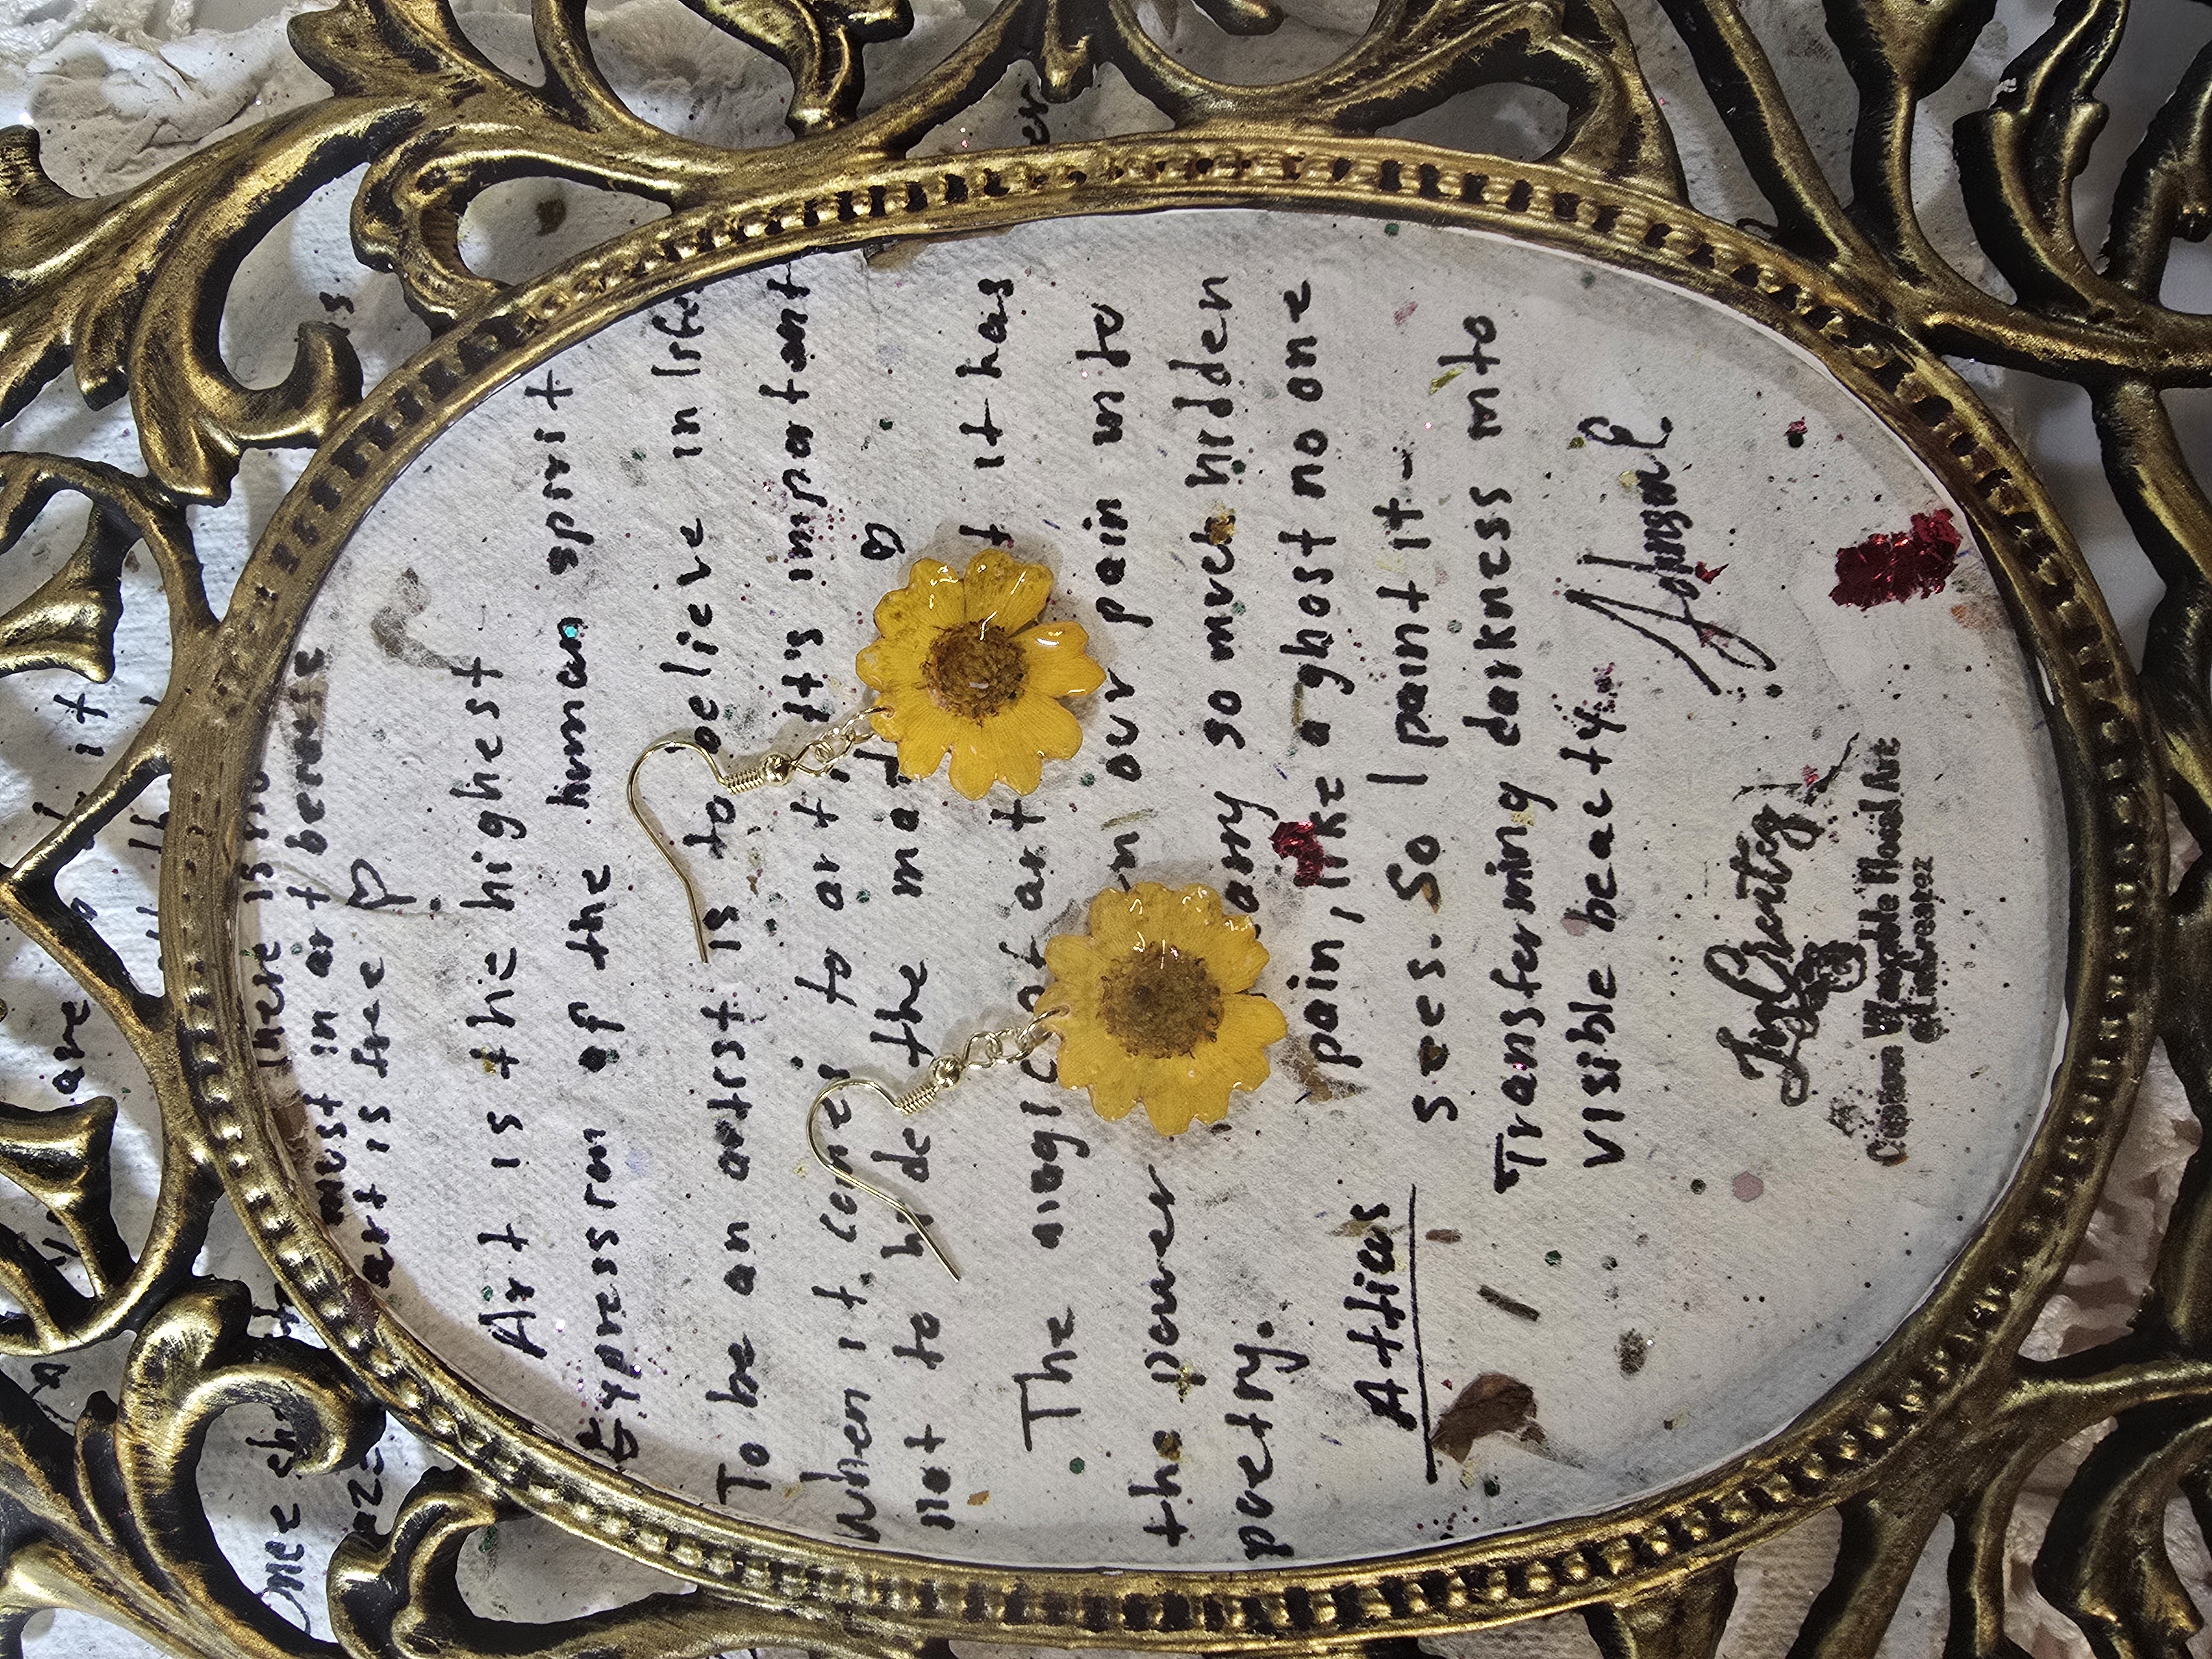 there is no
must in art because
art is free ♡
Art is the highest
Expression of the human spirit
To be an artist is to believe in life
When it comes to art, it's important
not to hide the mad
The magic of art it has
the power in our pain into
poetry.
Attics
so much hidden
pain, like a ghost no one
sees. So I paint it -
Transferming darkness into
visible beacty.
JinCreatez
Custom Wearable Fluid Art
@Jincreatez
One
are
it